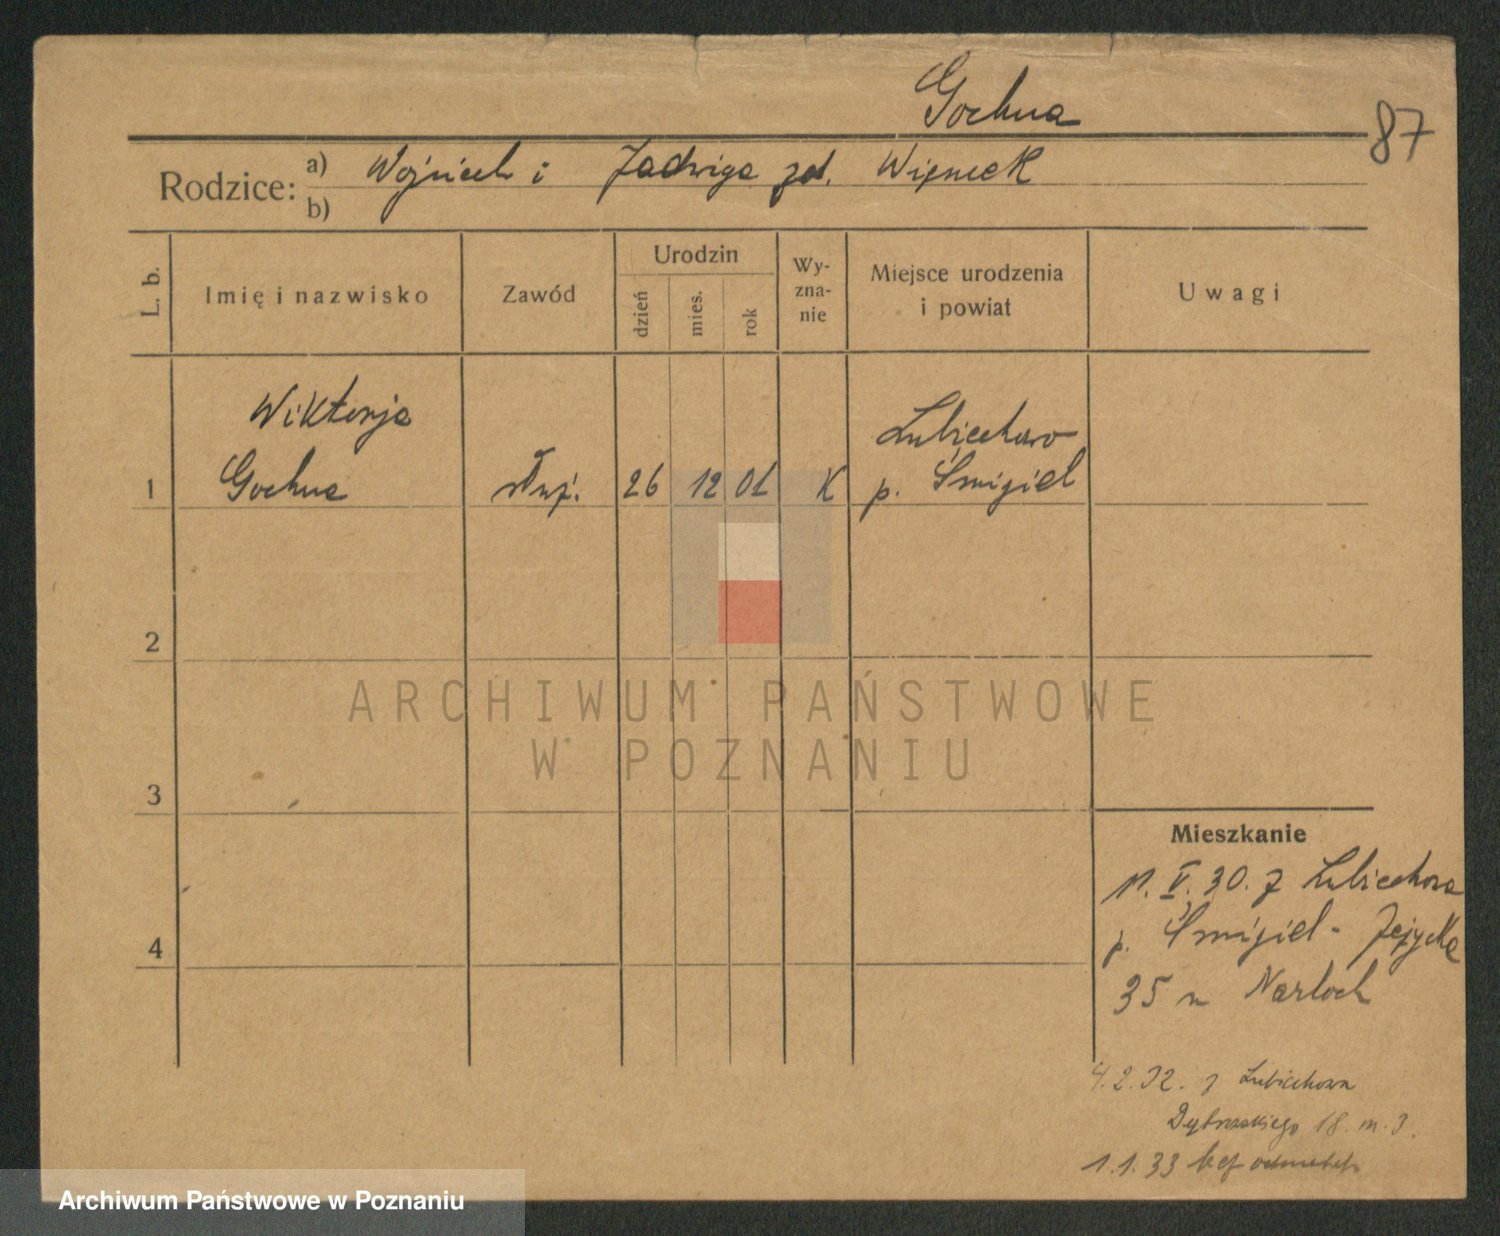 Gochna
87
Rodzice: a) Wojciech i Jadwiga zd. Więncek
b)
L. b.
Imię i nazwisko
Zawód
Urodzin
dzień
mies.
rok
Wy-
zna-
nie
Miejsce urodzenia
i powiat
Uwagi
Wiktorja
1 Gochna służ. 26 12 01 K
Lubiechowo
p. Śmigiel
2
3
4
ARCHIWUM PAŃSTWOWE
W POZNANIU
Mieszkanie
11. V. 30. z Lubiechowa
p. Śmigiel - Jeżycka
35 u Narloch
4.2.32. z Lubiechowa
Dąbrowskiego 18. m. 3.
1.1.33 bez odmeld.
Archiwum Państwowe w Poznaniu